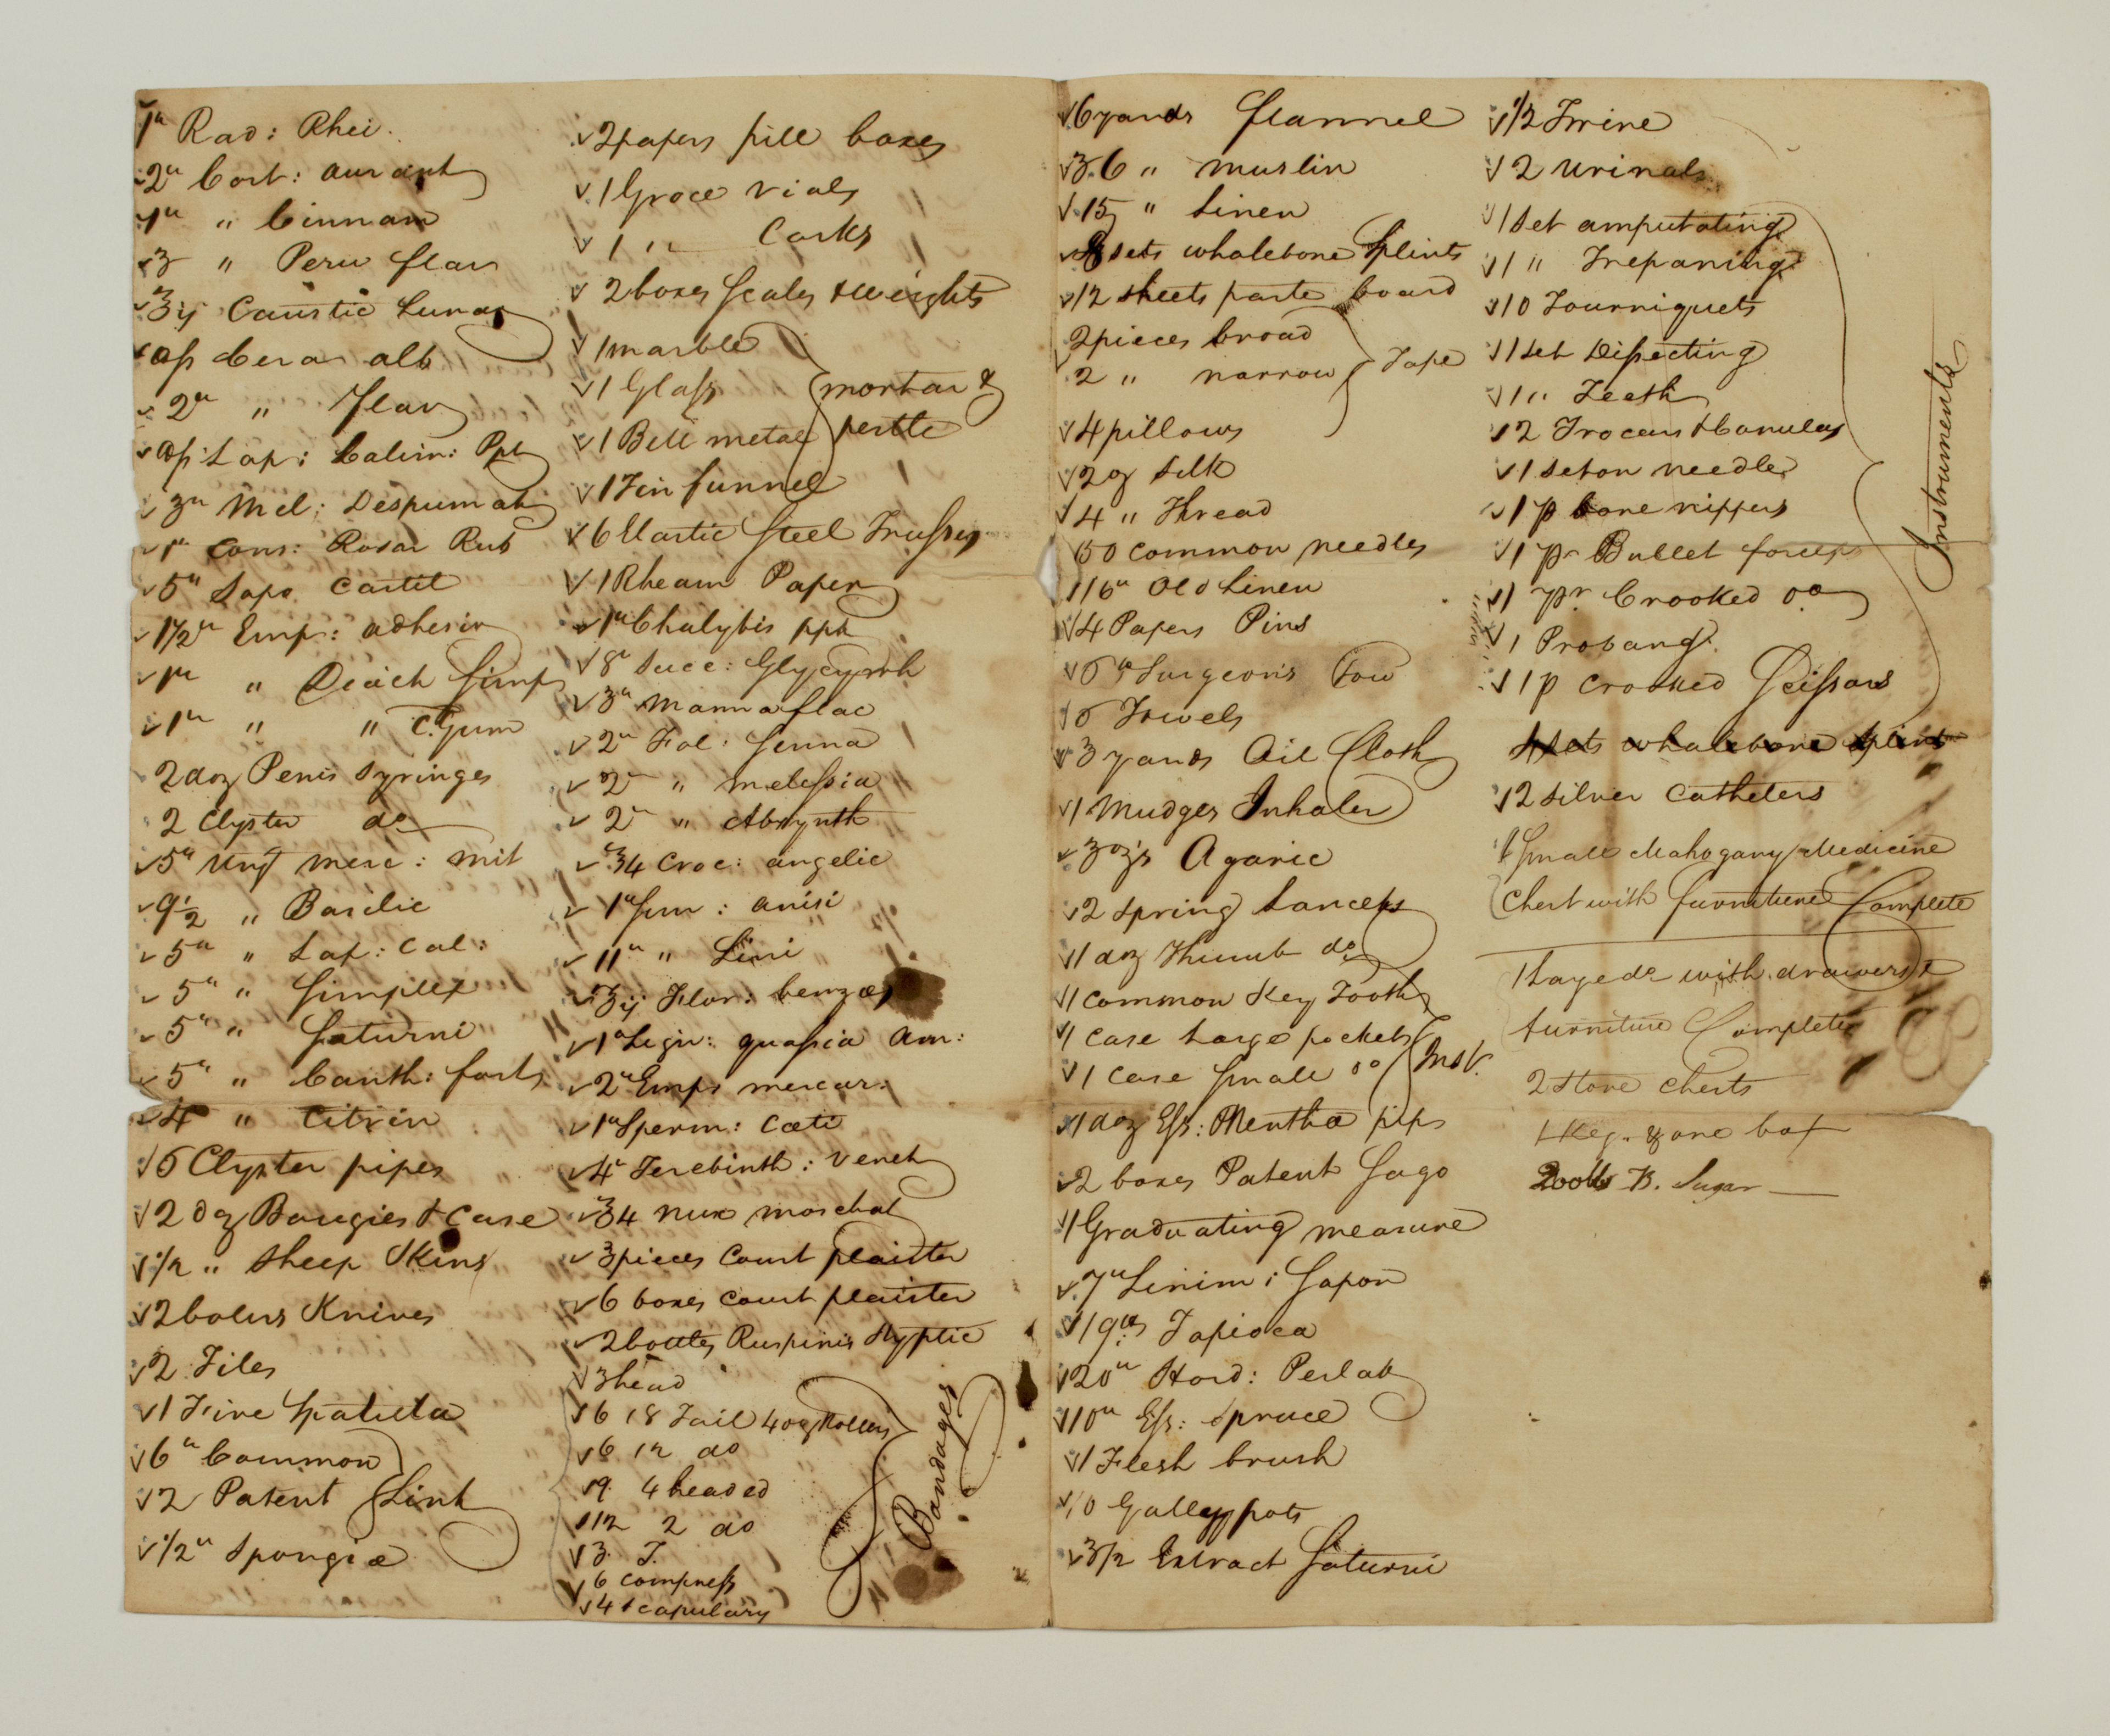 1" Rad: Rhei.
2" Cort: aurant
1" " Cinnam
3 " Peru flav
℥ij Caustic Lunar
Cera alb
2" " Flav
Lap: Calim: Ppt
3" Mel: Despumat
1" Cons: Rosar Rub
5" Sapo Castil
1½" Emp: adhesiv
1" " Diach Simp
1" " " C. Gum
2 doz Penis Syringes
2 Clyster do
5" Ung merc: mit
9½ " Basilic
5" " Lap: Cal:
5" " Simplex
5" " Saturni
5" " Canth: fort
4 " Citrin
6 Clyster pipes
2 doz Bougies & Case
1/2 " Sheep Skins
2 bolus Knives
2 Tiles
1 Fine Spatula
6" Common
2 Patent } Lint
1/2" Spongiæ
2 papers pill boxes
1 Groce vials
1 " Corks
2 boxes Scales & Weights
1 marble
1 Glass } mortar &
1 Bell metal } pestle
1 Tin funnel
6 Elastic Steel Trusses
1 Rheam Paper
1" Chalybis ppt
8" Succ: Glycyrrh
3" Manna flac
2" Fol: Senna
2" " melissia
2" " Absynth
℥4 Croc: angelic
1" Sem: anisi
11" " Lini
℥ij Flor: benzœ
1" Lign: quassia am:
2" Emps mercur:
1" Sperm: Cœti
4" Terebinth: venet
℥4 nux moschat
3 pieces Court plaister
6 boxes Court plaister
2 bottles Ruspinis Styptic
3 head
6 18 Tail 4 doz Rollers
6 12 do
9. 4 headed
12 2 do
3. T.
6 compress
4 scapulary
Bandages
6 yards flannel
36 " muslin
15 " Linen
8 sets whalebone Splints
12 sheets paste board
2 pieces broad
2 " narrow } Tape
4 pillows
2 oz Silk
4 " Thread
50 common needles
16" Old Linen
4 Papers Pins
6" Surgeons Tow
6 Towels
3 yards Oil Cloth
1 Mudges Inhaler
3 ozs Agaric
2 Spring Lancets
1 doz Thumb do
1 common Key Tooth
1 Case Large pockets
1 Case Small do } Inst.
1 doz Ess: Mentha pips
2 boxes Patent Sago
1 Graduating measure
7" Linim: Sapon
19" Tapioca
20" Hord: Perlat
10" Ess: Spruce
1 Flesh brush
10 Galley pots
3½ Extract Saturni
1/2 Twine
2 Urinals
1 Set amputating
1 " Trepaning
10 Tourniquets
1 Set Dissecting
1 " Teeth
2 Trocars & Canulas
1 Seton needle
1 p bone nippers
1 pr Bullet forceps
1 pr Crooked do
1 Probang.
1 p Crooked Scissors
Instruments
4 Sets whalebone Splints
2 Silver Catheters
1 Small Mahogany Medicine
Chest with furniture Complete
1 Large do with drawers &
furniture Complete
2 Store chests
1 Keg. & one box
200lbs B. Sugar